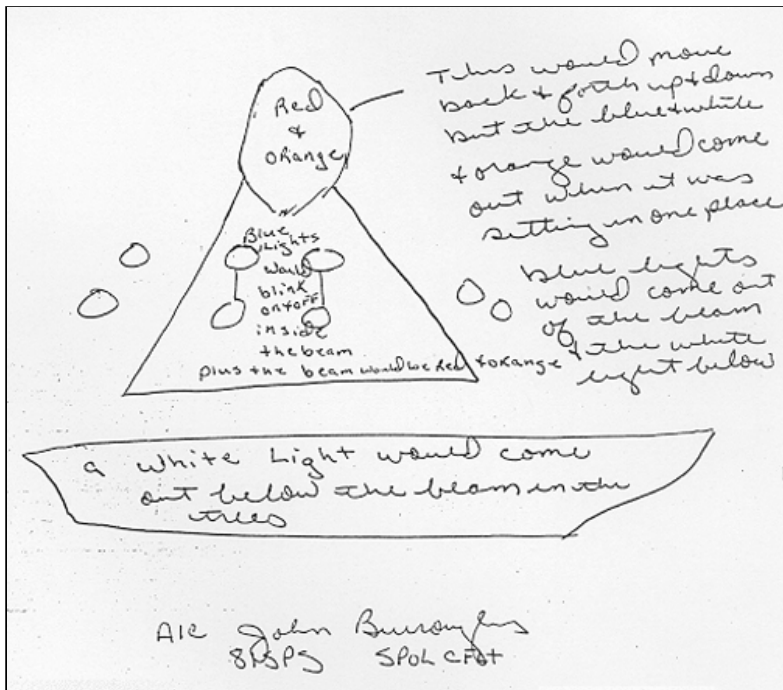 Red
+
orange
This would move
back + forth up + down
but the blue + white
+ orange would come
out when it was
setting in one place
Blue
Lights
would
blink
on + off
inside
the beam
plus the beam would be Red + orange
blue lights
would come out
of the beam
+ the white
light below
a white Light would come
out below the beam in the
trees
A1C John Burroughs
81SPS